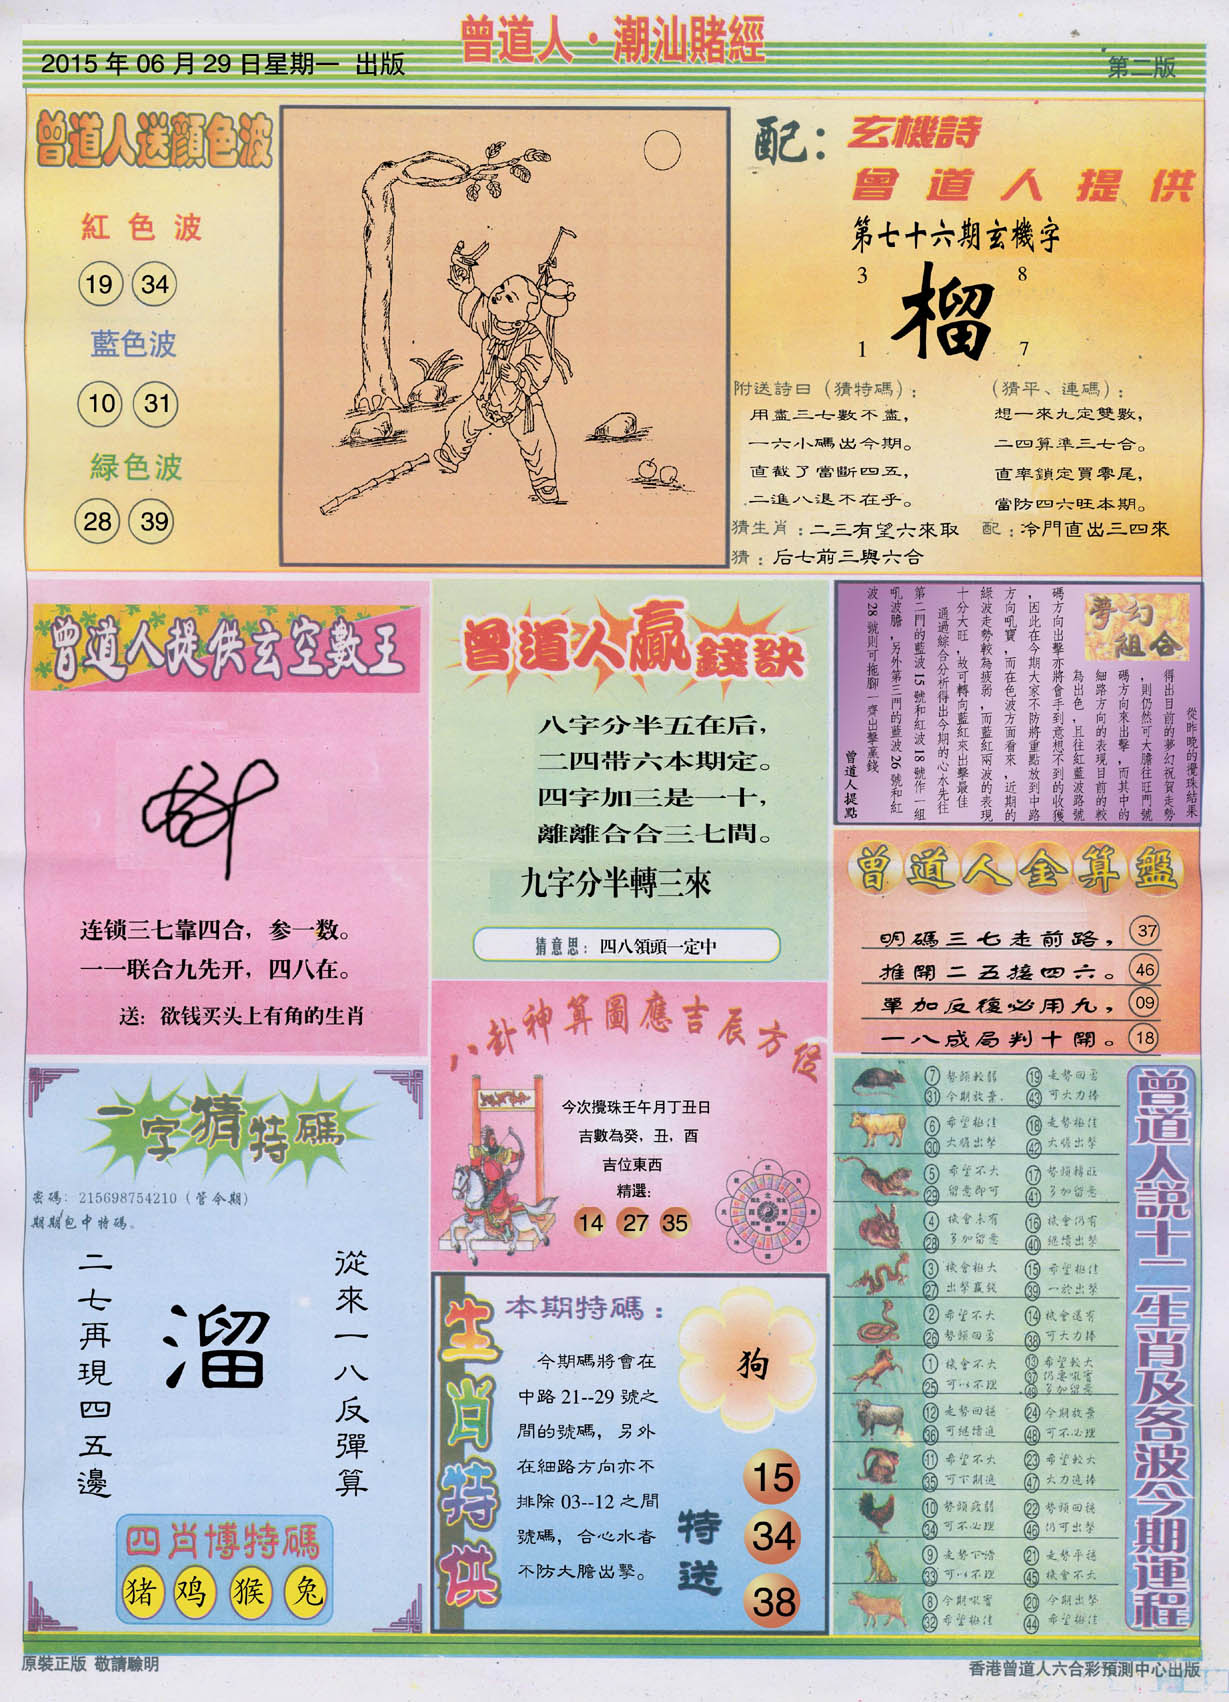 曾道人·潮汕賭經
2015 年 06 月 29 日星期一 出版
第二版
曾道人送顏色波
紅色波
19 34
藍色波
10 31
緑色波
28 39
配：玄機詩
曾道人提供
第七十六期玄機字
3 8
榴
1 7
附送詩日（猜特碼）：
用盡三七數不盡，
一六小碼出今期。
直截了當斷四五，
二進八退不在乎。
（猜平、連碼）：
想一來九定雙數，
二四算準三七合。
直率鎖定買零尾，
當防四六旺本期。
猜生肖：二三有望六來取
配：冷門直出三四來
猜：后七前三與六合
曾道人提供玄空數王
连锁三七靠四合，参一数。
一一联合九先开，四八在。
送：欲钱买头上有角的生肖
曾道人赢錢訣
八字分半五在后，
二四带六本期定。
四字加三是一十，
離離合合三七間。
九字分半轉三來
猜意思：四八領頭一定中
夢幻組合
從昨晚的攪珠結果
得出目前的夢幻祝賀走勢
，則仍然可大膽往旺門號
碼方向來出擊，而其中的
細路方向的表現目前的較
為出色，且往紅藍波路號
碼方向出擊亦將會手到意想不到的收獲
，因此在今期大家不防將重點放到中路
方向吼寶，而在色波方面看來，近期的
綠波走勢較為疲弱，而藍紅兩波的表現
十分大旺，故可轉向藍紅來出擊最佳
通過綜合分析得出今期的心水先往
第二門的藍波 15 號和紅波 18 號作一組
吼波膽，另外第三門的藍波 26 號和紅
波 28 號則可拖腳一齊出擊赢錢
曾道人提點
曾道人金算盤
明碼三七走前路， 37
推開二五接四六。 46
單加反復必用九， 09
一八成局判十開。 18
八卦神算圖應吉辰方位
今次攪珠壬午月丁丑日
吉數為癸，丑，酉
吉位東西
精選：
14 27 35
一字猜特碼
密碼：215698754210（管令期）
期期包中特碼。
從來一八反彈算
溜
二七再現四五邊
四肖博特碼
猪 鸡 猴 兔
生肖特供
本期特碼：
今期碼將會在
中路 21--29 號之
間的號碼，另外
在細路方向亦不
排除 03--12 之間
號碼，合心水者
不防大膽出擊。
狗
特送
15
34
38
曾道人説十二生肖及各波今期運程
7 勢頭較弱 19 走勢回勇
31 今期放棄 43 可大力捧
6 希望極佳 18 走勢極佳
30 大膽出擊 42 大膽出擊
5 希望不大 17 勢頭轉旺
29 留意即可 41 多加留意
4 機會未有 16 機會仍有
28 多加留意 40 繼續出擊
3 機會極大 15 希望極佳
27 出擊赢錢 39 一於出擊
2 希望不大 14 機會還有
26 勢頭回勇 38 可大力捧
1 機會不大 13 希望較大
25 可以不理 37 仍要吸寶
49 多加留意
12 走勢回穩 24 今期放棄
36 可繼續追 48 可不必理
11 希望不大 23 希望較大
35 可下期追 47 大力追捧
10 勢頭疲弱 22 勢頭回穩
34 可不必理 46 仍可出擊
9 走勢下滑 21 走勢平穩
33 可以不理 45 機會不大
8 今期吸寶 20 今期出擊
32 希望極佳 44 希望極佳
原裝正版 敬請驗明
香港曾道人六合彩預測中心出版